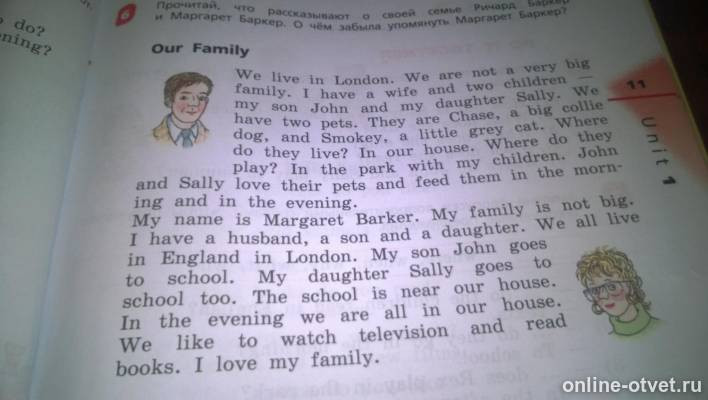 do?
ning?
6
Прочитай, что рассказывают о своей семье Ричард Баркер
и Маргарет Баркер. О чём забыла упомянуть Маргарет Баркер?
Our Family
We live in London. We are not a very big
family. I have a wife and two children —
my son John and my daughter Sally. We
have two pets. They are Chase, a big collie
dog, and Smokey, a little grey cat. Where
do they live? In our house. Where do they
play? In the park with my children. John
and Sally love their pets and feed them in the morn-
ing and in the evening.
My name is Margaret Barker. My family is not big.
I have a husband, a son and a daughter. We all live
in England in London. My son John goes
to school. My daughter Sally goes to
school too. The school is near our house.
In the evening we are all in our house.
We like to watch television and read
books. I love my family.
11
Unit 1
online-otvet.ru